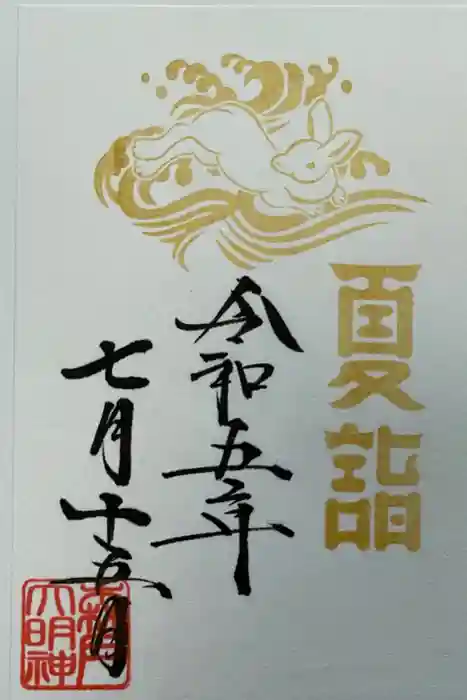 夏詣
令和五年
七月十五日
明神